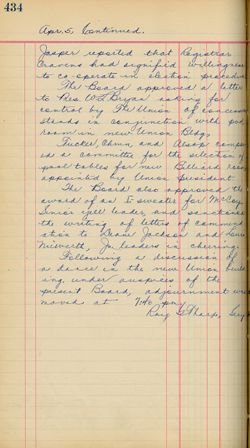 434
Apr. 5, Continued.
Jasper reported that Registrar
Cravens had signified willingness
to co-operate in election procedure
The Board approved a letter
to Pres. W. L. Bryan asking for
control by the Union of concession
stands in conjunction with pool
room in new Union Bldg.
Tucker, Ohmn, and Alsop compos
ed a committee for the selection of
pool tables for new Billiard room
appointed by Union President
The Board also approved the
award of an I sweater for McCoy,
Senior yell leader and sanctioned
the writing of letters of commend
ation to Dean Jackson and
Jr. leaders in cheering.
Following a discussion of
a dance in the new Union build
ing, under auspices of the
present Board, adjournment was
moved at 7:40 p.m.
Tharp, Secy